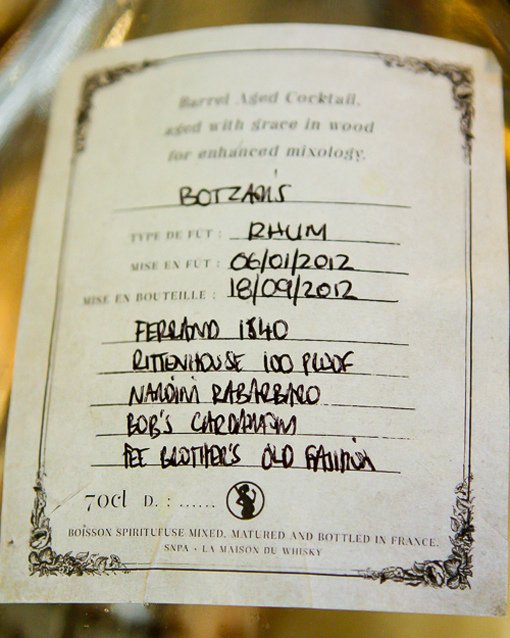 Barrel Aged Cocktail,
aged with grace in wood
for enhanced mixology.
BOTZARIS
TYPE DE FUT : RHUM
MISE EN FUT : 06/01/2012
MISE EN BOUTEILLE : 18/09/2012
FERRAND 1840
RITTENHOUSE 100 PROOF
NARDINI RABARBARO
BOB'S CARDAMOM
FEE BROTHER'S OLD FASHION
70cl D. : ......
BOISSON SPIRITUFUSE MIXED, MATURED AND BOTTLED IN FRANCE.
SNPA - LA MAISON DU WHISKY